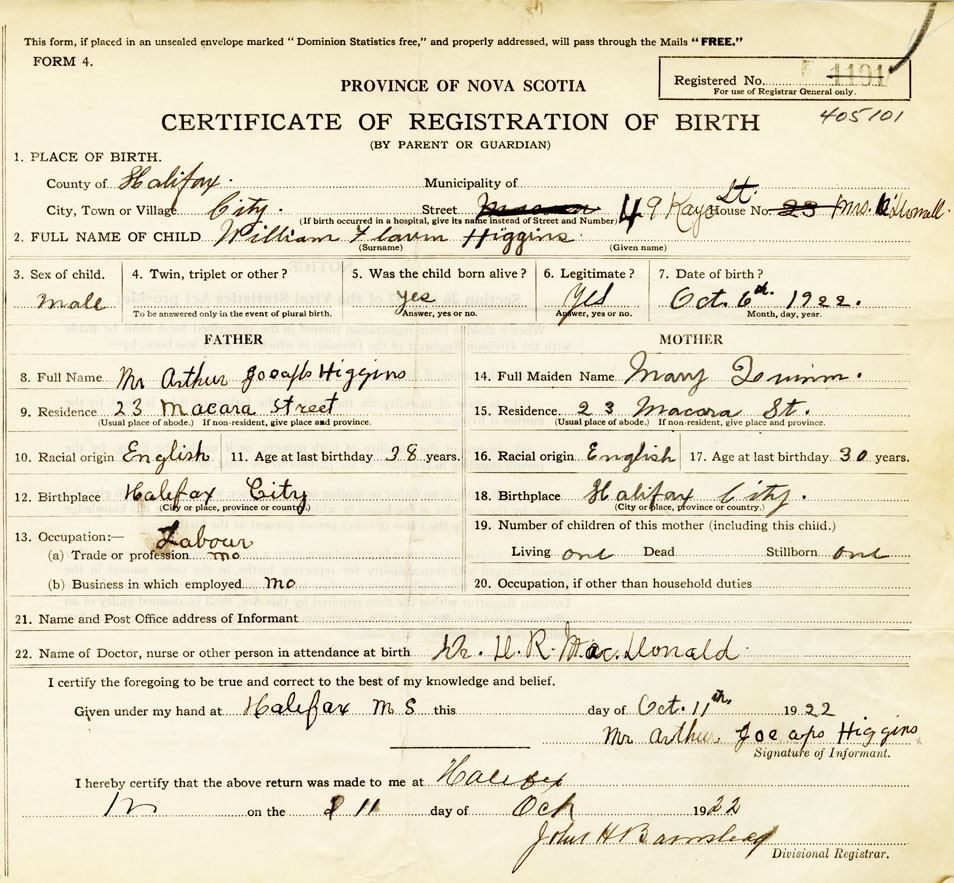 This form, if placed in an unsealed envelope marked "Dominion Statistics free," and properly addressed, will pass through the Mails "FREE."
FORM 4.
Registered No. 1191
For use of Registrar General only.
PROVINCE OF NOVA SCOTIA
405101
CERTIFICATE OF REGISTRATION OF BIRTH
(BY PARENT OR GUARDIAN)
1. PLACE OF BIRTH.
County of Halifax. Municipality of
City, Town or Village City. Street 49 Kaye St. House No. 23 Mrs.
(If birth occurred in a hospital, give its name instead of Street and Number)
2. FULL NAME OF CHILD William Flavin Higgins
(Surname) (Given name)
3. Sex of child. 4. Twin, triplet or other? 5. Was the child born alive? 6. Legitimate? 7. Date of birth?
Male yes Yes Oct. 6th. 1922.
To be answered only in the event of plural birth. Answer, yes or no. Answer, yes or no. Month, day, year.
FATHER MOTHER
8. Full Name Mr Arthur Joeaps Higgins 14. Full Maiden Name Mary
9. Residence 23 Macara Street 15. Residence. 23 Macara St.
(Usual place of abode.) If non-resident, give place and province. (Usual place of abode.) If non-resident, give place and province.
10. Racial origin English 11. Age at last birthday 38 years. 16. Racial origin English 17. Age at last birthday 30 years.
12. Birthplace Halifax City 18. Birthplace Halifax City.
(City or place, province or country.) (City or place, province or country.)
13. Occupation:— Labour 19. Number of children of this mother (including this child.)
(a) Trade or profession no Living one Dead Stillborn one
(b) Business in which employed no 20. Occupation, if other than household duties
21. Name and Post Office address of Informant
22. Name of Doctor, nurse or other person in attendance at birth Dr. H. R. Mac. Donald
I certify the foregoing to be true and correct to the best of my knowledge and belief.
Given under my hand at Halifax N S this day of Oct. 11th 1922
Mr Arthur Joeaps Higgins
Signature of Informant.
I hereby certify that the above return was made to me at Halifax
on the 11 day of Oct 1922
John H Barnstead
Divisional Registrar.